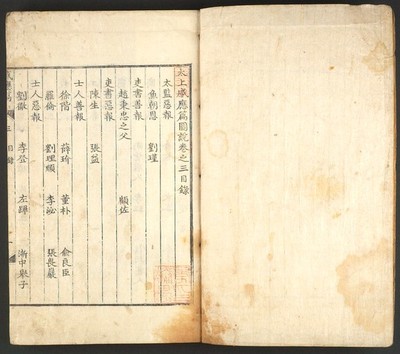 太上感應篇圖說卷之三目錄
太監惡報
魚朝恩 劉瑾
吏書善報
趙秉忠之父 顧佐
吏書惡報
陳生 張益
士人善報
徐階 薛琦 董朴 俞良臣
羅倫 劉理順 李泌 張畏巖
士人惡報
劉徹 李登 左蹕 浙中舉子